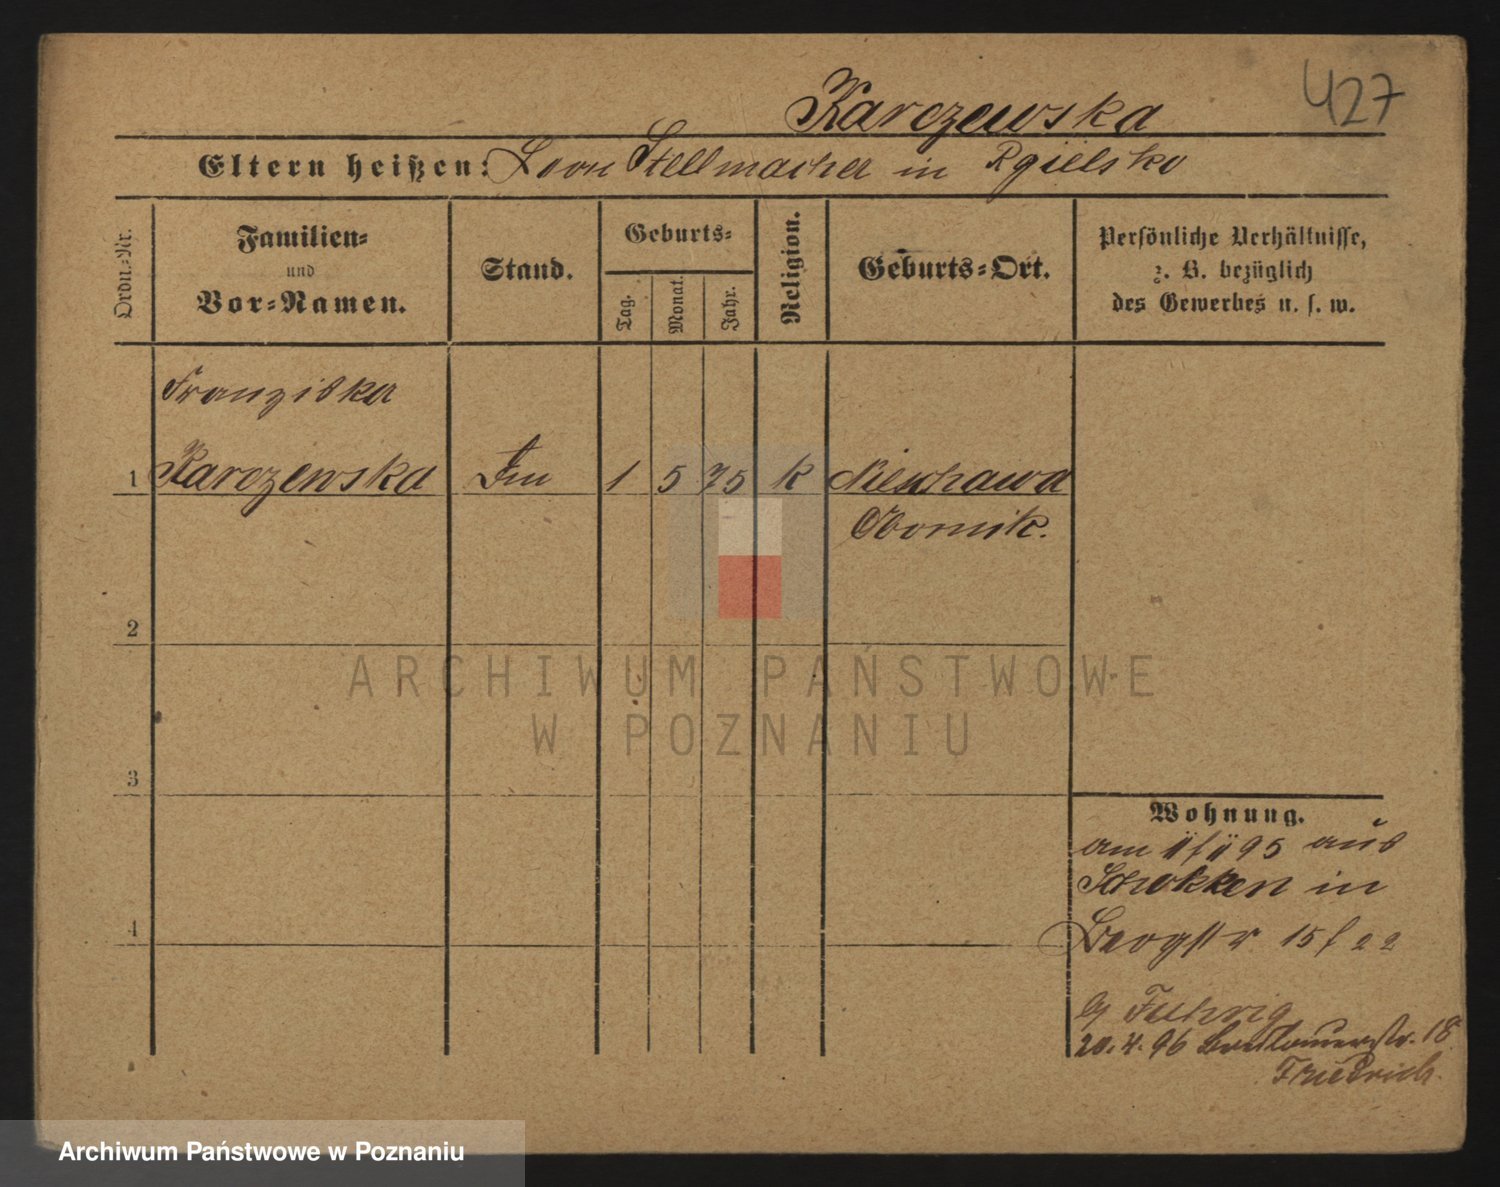 427
Karczewska
Eltern heißen: Leon Stellmacher in Rgielsko
Ordn.-Nr.
Familien-
und
Vor-Namen.
Stand.
Geburts-
Tag.
Monat.
Jahr.
Religion.
Geburts-Ort.
Persönliche Verhältnisse,
z. B. bezüglich
des Gewerbes u. s. w.
Franziska
1 Karczewska 1 5 75 k Nieschawa
Obornik.
2
3
4
Wohnung.
am 95 aus
Schokken in
Bergstr 15 / 22
20.4.96 Breslauerstr. 18
Friedrich.
ARCHIWUM PAŃSTWOWE
W POZNANIU
Archiwum Państwowe w Poznaniu